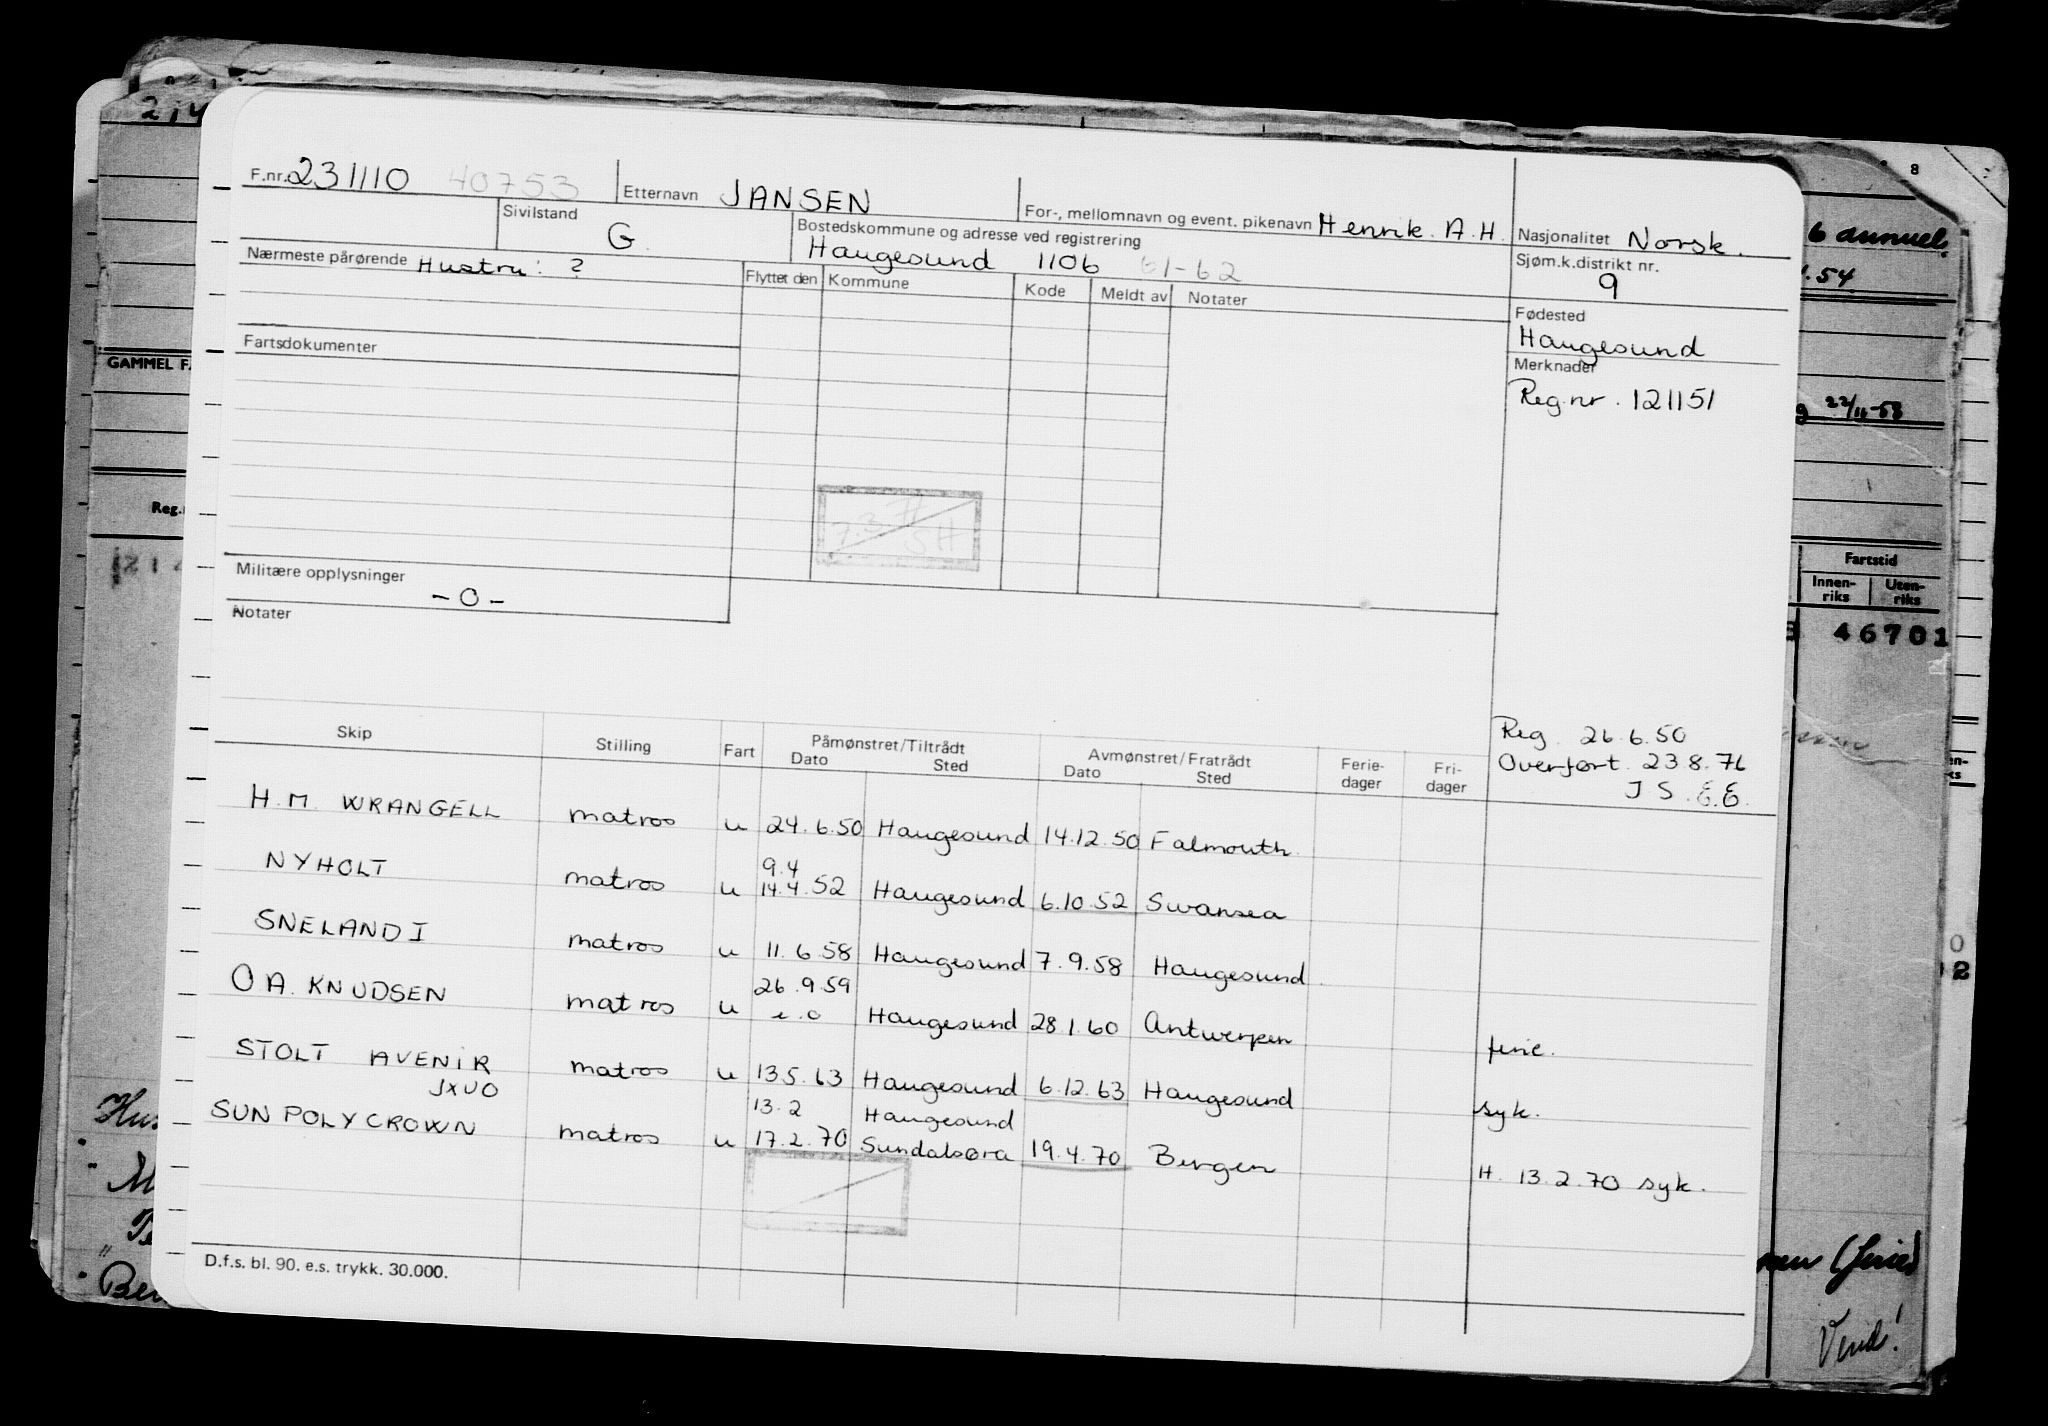 F.nr. 231110 40753 Etternavn JANSEN For-, mellomnavn og event. pikenavn Henrik. A.H. Nasjonalitet Norsk.
Sivilstand G. Bostedskommune og adresse ved registrering Haugesund 1106 61-62 Sjøm.k.distrikt nr. 9
Nærmeste pårørende Hustru: ? Flyttet den Kommune Kode Meldt av Notater
Fødested
Haugesund
Fartsdokumenter
Merknader
Reg.nr. 121151
7.3.77
SH
Militære opplysninger
-0-
Notater
Reg. 26.6.50
Overført. 23.8.76
J S. E.E.
Skip Stilling Fart Påmønstret/Tiltrådt Dato Sted Avmønstret/Fratrådt Dato Sted Ferie-dager Fri-dager
H.M. WRANGELL matros u 24.6.50 Haugesund 14.12.50 Falmouth.
NYHOLT matros u 9.4 14.4.52 Haugesund 6.10.52 Swansea
SNELAND I matros u 11.6.58 Haugesund 7.9.58 Haugesund
O A. KNUDSEN matros u 26.9.59 e.o Haugesund 28.1.60 Antwerpen ferie.
STOLT AVENIR matros u 13.5.63 Haugesund 6.12.63 Haugesund syk.
JXUO
SUNPOLYCROWN matros u 13.2 Haugesund
17.2.70 Sundalsøra 19.4.70 Bergen H. 13.2.70 syk.
D.f.s. bl. 90. e.s. trykk. 30.000.
214
GAMMEL F.
Reg.
8
.54
22/11-58
Fartstid
Innen-riks Uten-riks
46701
Vend!